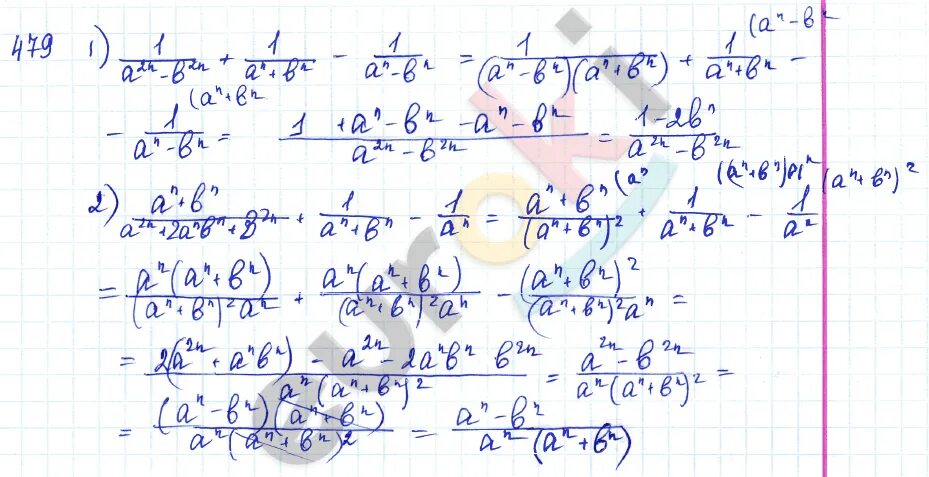 479 1) 1/(a^{2n}-b^{2n}) + 1/(a^n+b^n) - 1/(a^n-b^n) = 1/((a^n-b^n)(a^n+b^n)) + 1/(a^n+b^n) (a^n-b^n -
- 1/(a^n-b^n) (a^n+b^n = (1+a^n-b^n-a^n-b^n)/(a^{2n}-b^{2n}) = (1-2b^n)/(a^{2n}-b^{2n})
2) (a^n+b^n)/(a^{2n}+2a^nb^n+b^{2n}) + 1/(a^n+b^n) - 1/a^n = (a^n+b^n)/(a^n+b^n)^2 (a^n + 1/(a^n+b^n) (a^n+b^n)a^n - 1/a^n (a^n+b^n)^2
= a^n(a^n+b^n)/((a^n+b^n)^2a^n) + a^n(a^n+b^n)/((a^n+b^n)^2a^n) - (a^n+b^n)^2/((a^n+b^n)^2a^n) =
= (2(a^{2n}+a^nb^n)-a^{2n}-2a^nb^n b^{2n})/(a^n(a^n+b^n)^2) = (a^{2n}-b^{2n})/(a^n(a^n+b^n)^2) =
= (a^n-b^n)(a^n+b^n)/(a^n(a^n+b^n)^2) = (a^n-b^n)/(a^n(a^n+b^n))
euroki